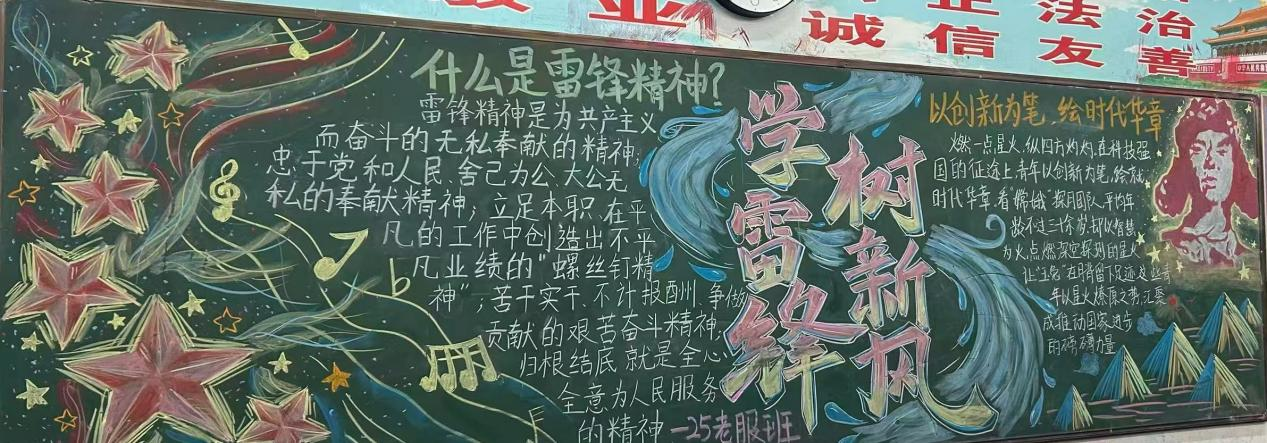 业
诚 信 友 善
正 法 治
什么是雷锋精神?
雷锋精神是为共产主义
而奋斗的无私奉献的精神;
忠于党和人民、舍己为公、大公无
私的奉献精神;立足本职、在平
凡的工作中创造出不平
凡业绩的"螺丝钉精
神";苦干实干、不计报酬、争做
贡献的艰苦奋斗精神,
归根结底,就是全心
全意为人民服务
的精神
—25老服班
学雷锋
树新风
以创新为笔,绘时代华章
燃一点星火,纵四方灼灼,在科技强
国的征途上,青年以创新为笔,绘就
时代华章,看"嫦娥"探月团队,平均年
龄不过三十余岁,却以智慧
为火,点燃深空探测的星火
让"玉兔"在月背留下足迹,这些青
年以星火燎原之势,汇聚
成推动国家进步
的磅礴力量